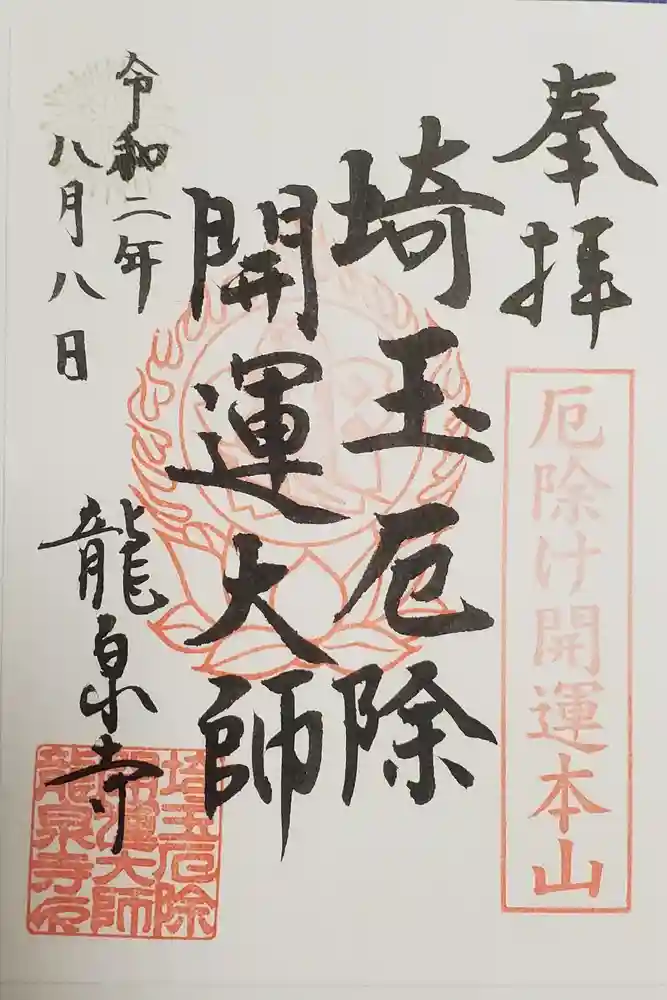 奉拝
厄除け開運本山
埼玉厄除
開運大師
令和二年
八月八日
龍泉寺
埼玉厄除
開運大師
龍泉寺印